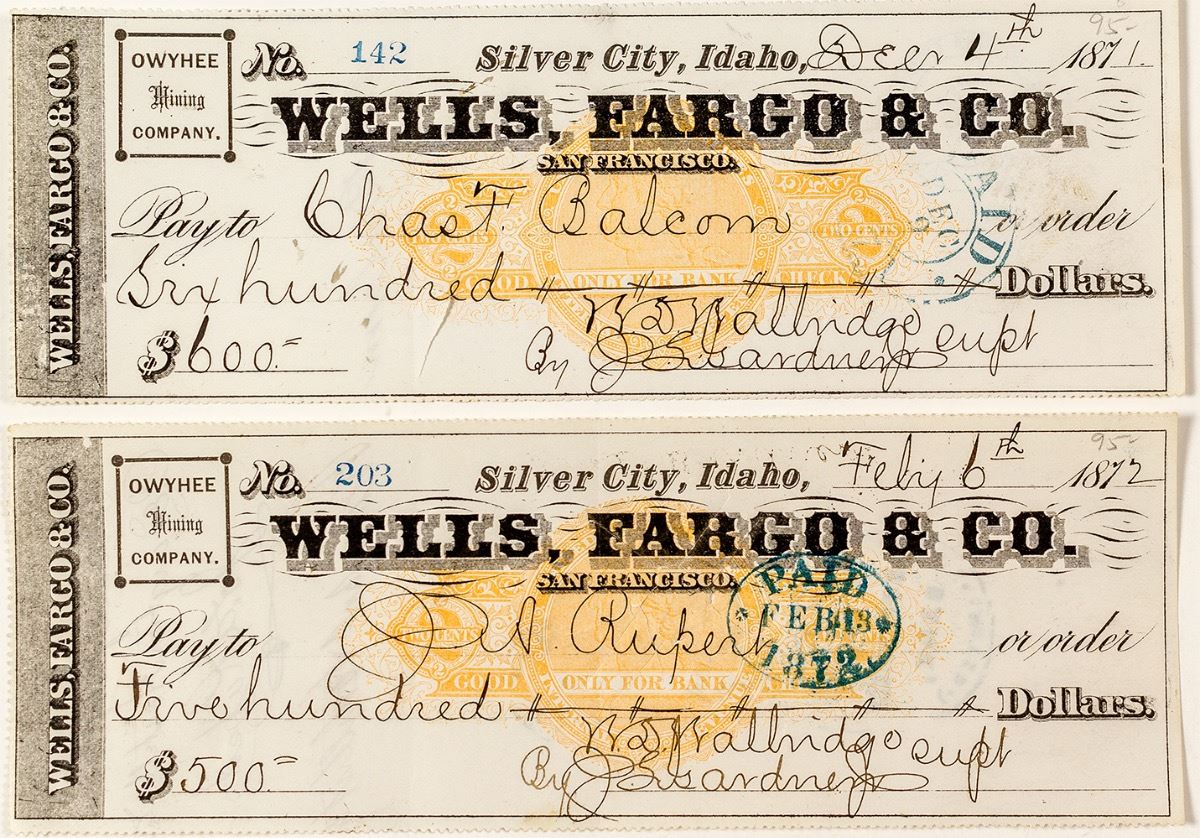 95-
WELLS, FARGO & CO.
OWYHEE
Mining
COMPANY.
No. 142 Silver City, Idaho, Decr 4th 1871.
WELLS, FARGO & CO.
SAN FRANCISCO.
Pay to Chas T. Balcom or order
PAID
DEC
TWO CENTS
2
TWO CENTS
2
GOOD ONLY FOR BANK CHECK
Six hundred Dollars.
W D Walbridge supt
$600.=
By J S Gardner
95-
WELLS, FARGO & CO.
OWYHEE
Mining
COMPANY.
No. 203 Silver City, Idaho, Feby 6th 1872
WELLS, FARGO & CO.
SAN FRANCISCO.
PAID
FEB 13
1872
Pay to J W. Rupert or order
TWO CENTS
GOOD ONLY FOR BANK
Five hundred Dollars.
W D Walbridge supt
$500=
By J S Gardner